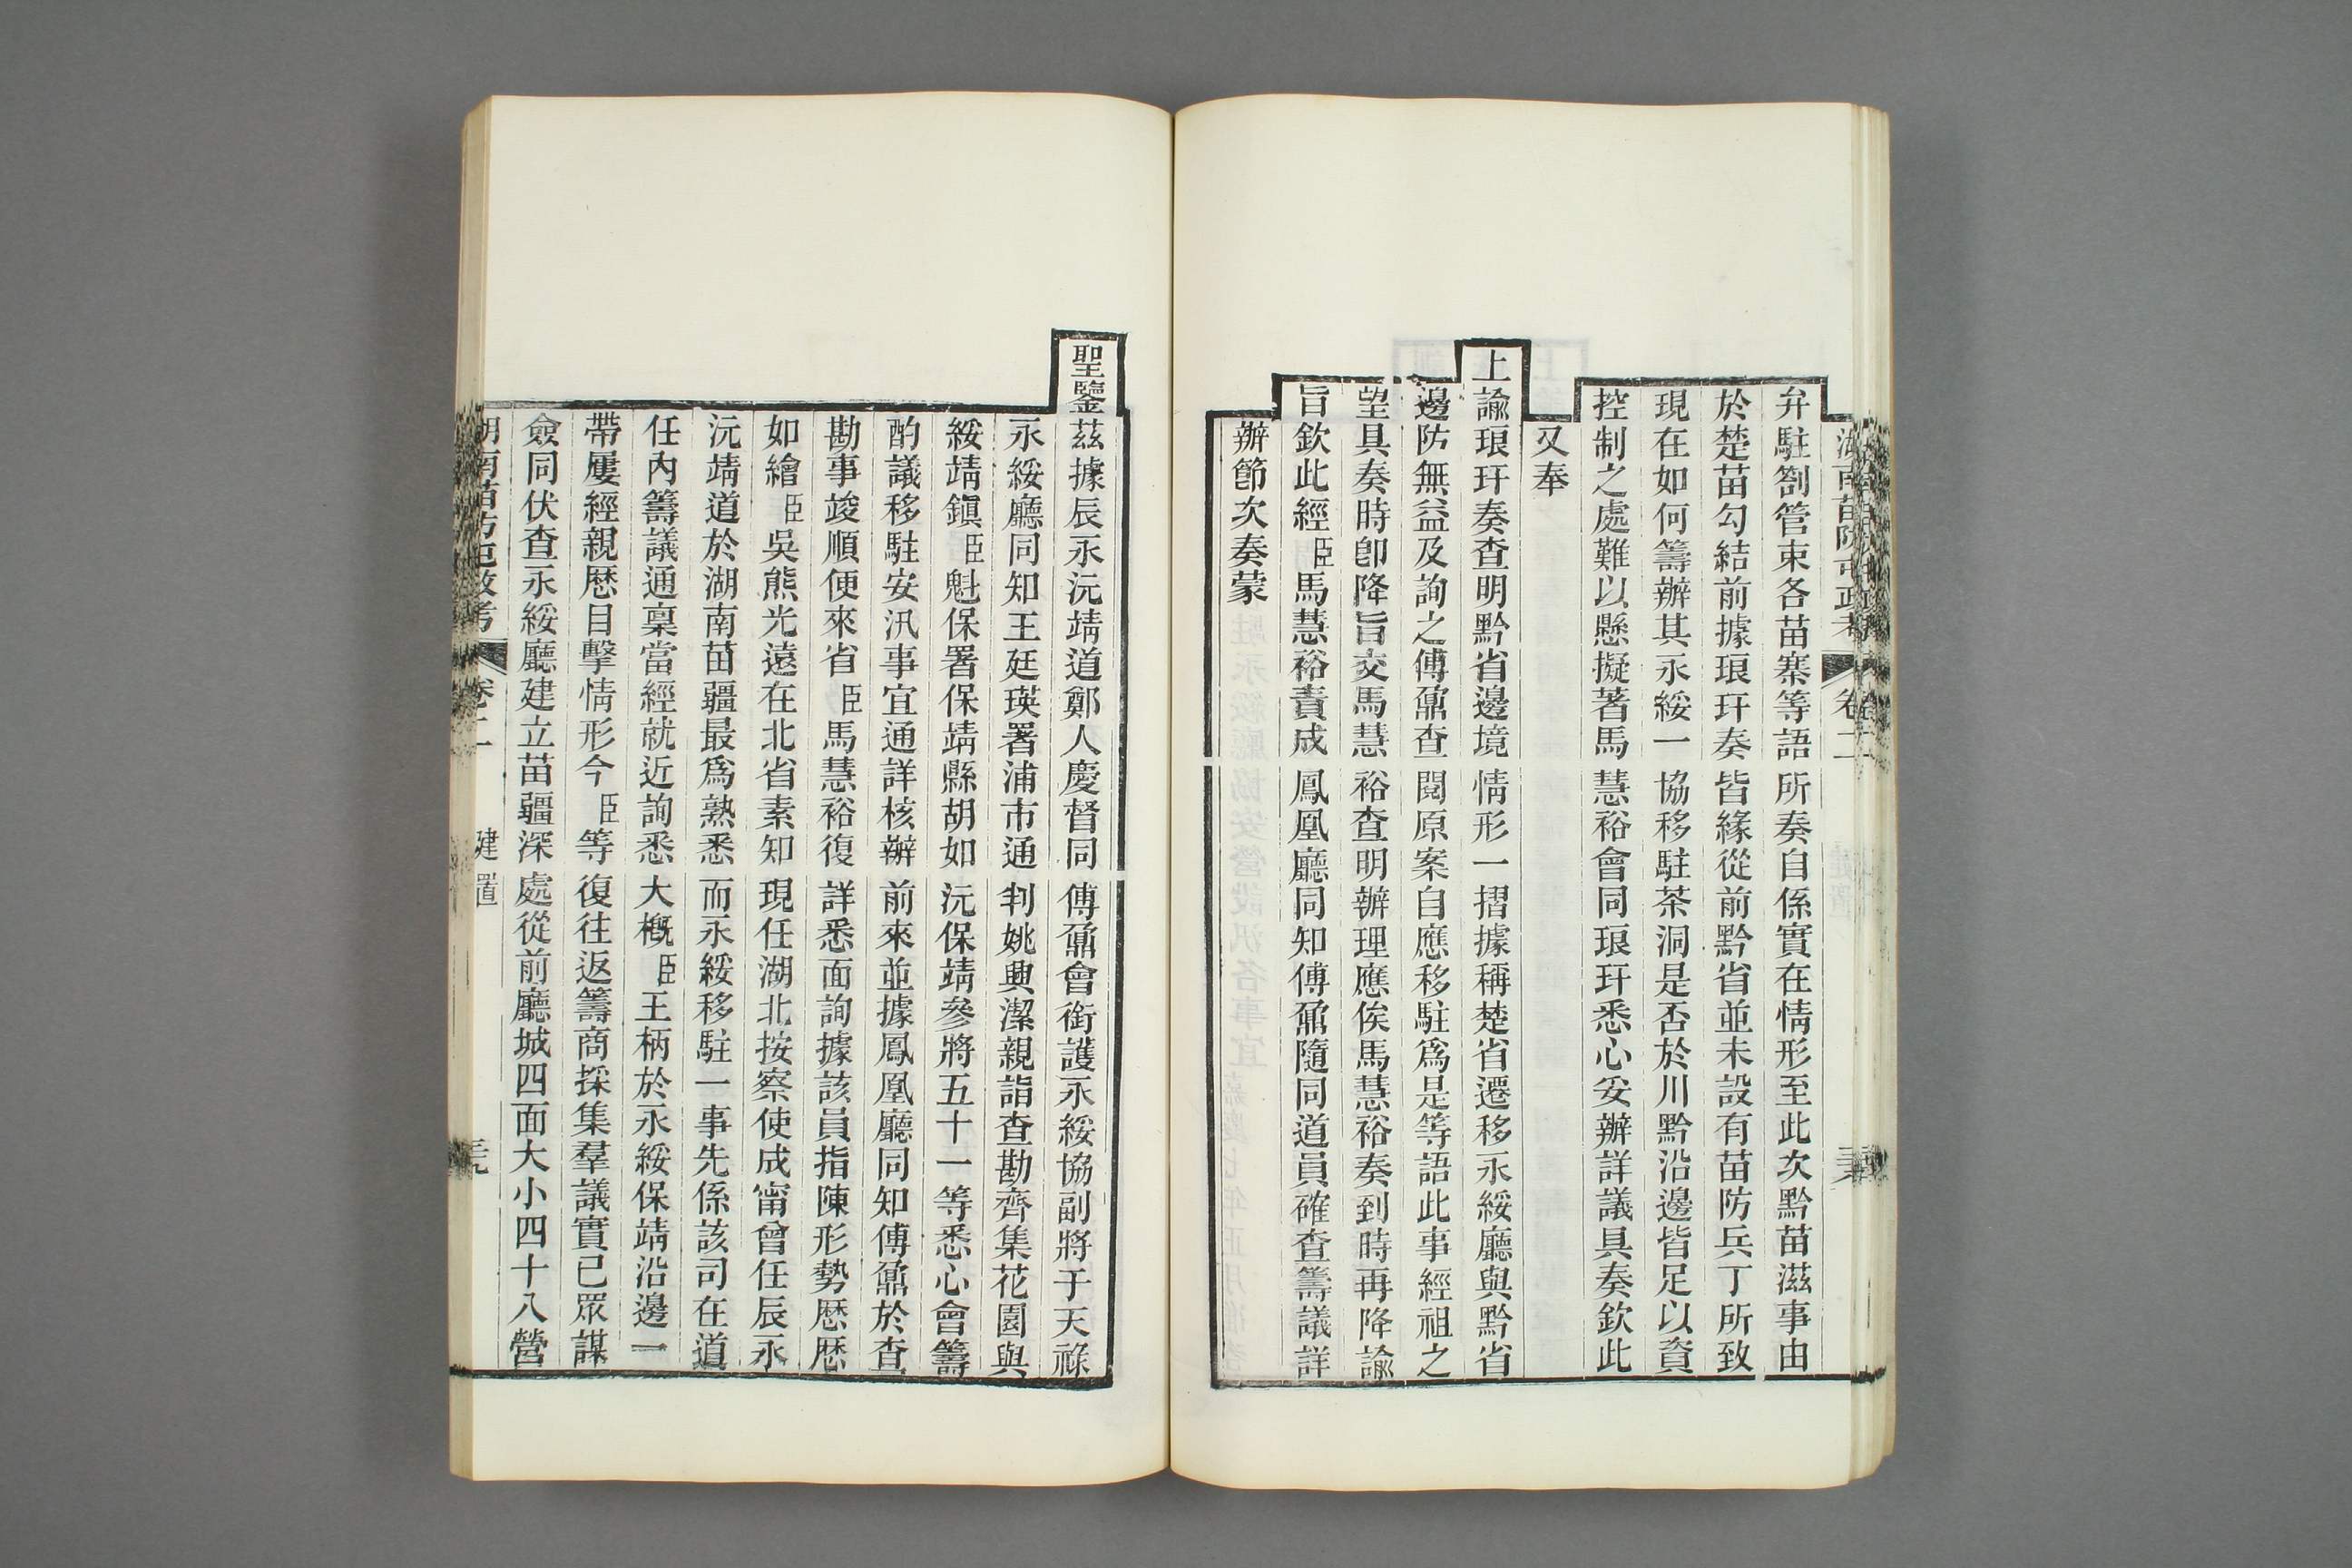 湖南苗防屯政考 卷二
弁駐劄管束各苗寨等語所奏自係實在情形至此次黔苗滋事由
於楚苗勾結前據琅玕奏皆緣從前黔省並未設有苗防兵丁所致
現在如何籌辦其永綏一協移駐茶洞是否於川黔沿邊皆足以資
控制之處難以懸擬著馬慧裕會同琅玕悉心妥辦詳議具奏欽此
又奉
上諭琅玕奏查明黔省邊境情形一摺據稱楚省遷移永綏廳與黔省
邊防無益及詢之傅鼐查閱原案自應移駐爲是等語此事經祖之
望具奏時卽降旨交馬慧裕查明辦理應俟馬慧裕奏到時再降諭
旨欽此經臣馬慧裕責成鳳凰廳同知傅鼐隨同道員確查籌議詳
辦節次奏蒙
聖鑒茲據辰永沅靖道鄭人慶督同傅鼐會銜護永綏協副將于天祿
永綏廳同知王廷瑛署浦市通判姚興潔親詣查勘齊集花園與
綏靖鎭臣魁保署保靖縣胡如沅保靖參將五十一等悉心會籌
酌議移駐安汛事宜通詳核辦前來並據鳳凰廳同知傅鼐於查
勘事竣順便來省臣馬慧裕復詳悉面詢據該員指陳形勢歷歷
如繪臣吳熊光遠在北省素知現任湖北按察使成甯曾任辰永
沅靖道於湖南苗疆最爲熟悉而永綏移駐一事先係該司在道
任內籌議通稟當經就近詢悉大槪臣王柄於永綏保靖沿邊一
帶屢經親歷目擊情形今臣等復往返籌商採集羣議實已眾謀
僉同伏查永綏廳建立苗疆深處從前廳城四面大小四十八營
湖南苗防屯政考 卷二 建置